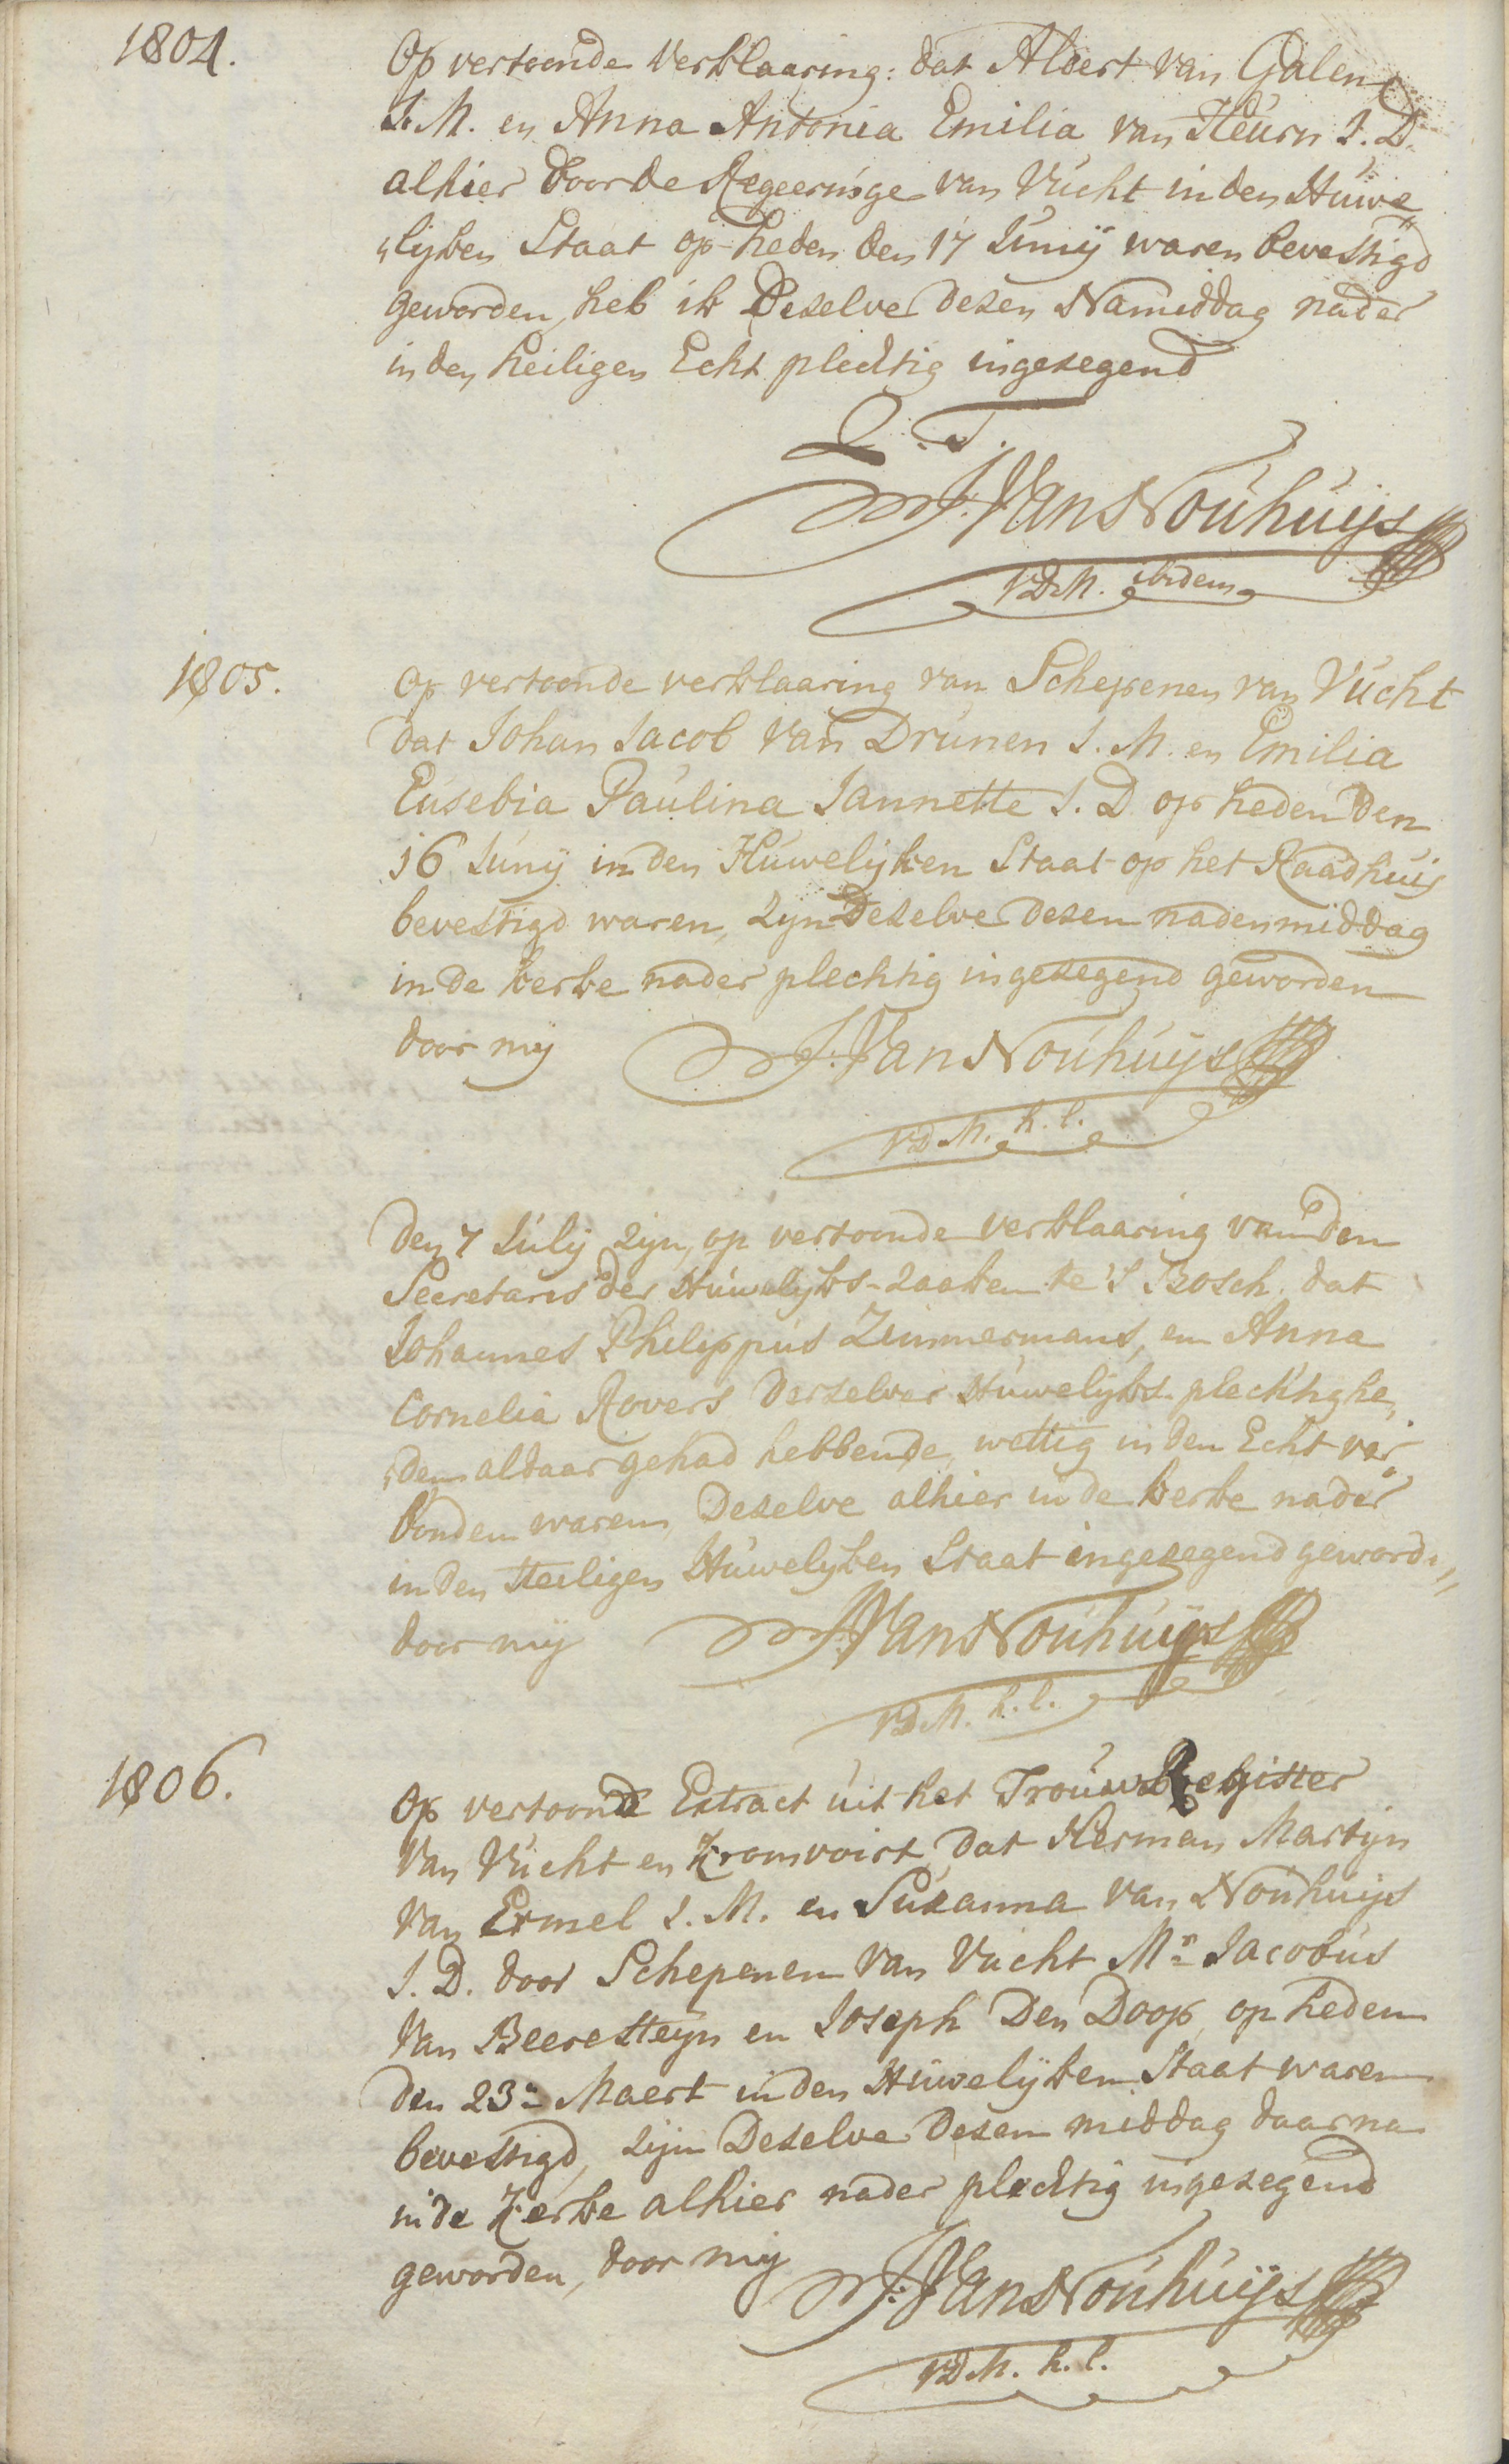 1804.
Op vertoonde Verklaaring: dat Aldert van Galen
J. M. en Anna Antonia Emilia van Heurn J. D.
alhier door de Regeeringe van Vucht in den Huwe
„lyken Staat op heden den 17 Junij waren bevestigd
geworden, heb ik Deselve desen Namiddag nader
in den heiligen Echt plechtig ingesegend
Q. T.
J. Van Nouhuijs
VDM. ibidem
1805.
Op vertoonde verklaaring van Schepenen van Vucht
dat Johan Jacob Van Drunen J. M. en Emilia
Eusebia Paulina Jannette J. D op heden den
16 Junij in den Huwelijken Staat op het Raadhuis
bevestigd waren, zyn Deselve desen nadenmiddag
in de kerke nader plechtig ingesegend geworden
door mij J. Van Nouhuijs
VDM. h. l.
Den 7 Julij zyn, op vertoonde verklaaring van den
Secretaris der Huwelyks-zaaken te 's Bosch, dat
Johannes Philippus Zimmermans, en Anna
Cornelia Rovers derzelver Huwelyks plechtighe„
„den aldaar gehad hebbende, wettig in den Echt ver„
bonden waren, Deselve alhier in de kerke nader
in den Heiligen Huwelyken Staat ingezegend geword„
door mij J. Van Nouhuijs
VDM. h. l.
1806.
Op vertoond Extract uit het Trouw Register
Van Vucht en Kromvoirt, dat Herman Martijn
Van Ermel J. M. en Susanna van Nouhuijs
J. D. door Schepenen van Vucht Mr. Jacobus
Van Beeresteyn en Joseph Den Doop, op heden
den 23n Maert in den Huwelijken Staat waren
bevestigd, zijn Deselve desen middag daarna
in de Kerke alhier nader plechtig ingesegend
geworden, door mij J. Van Nouhuijs
VDM. h. l.